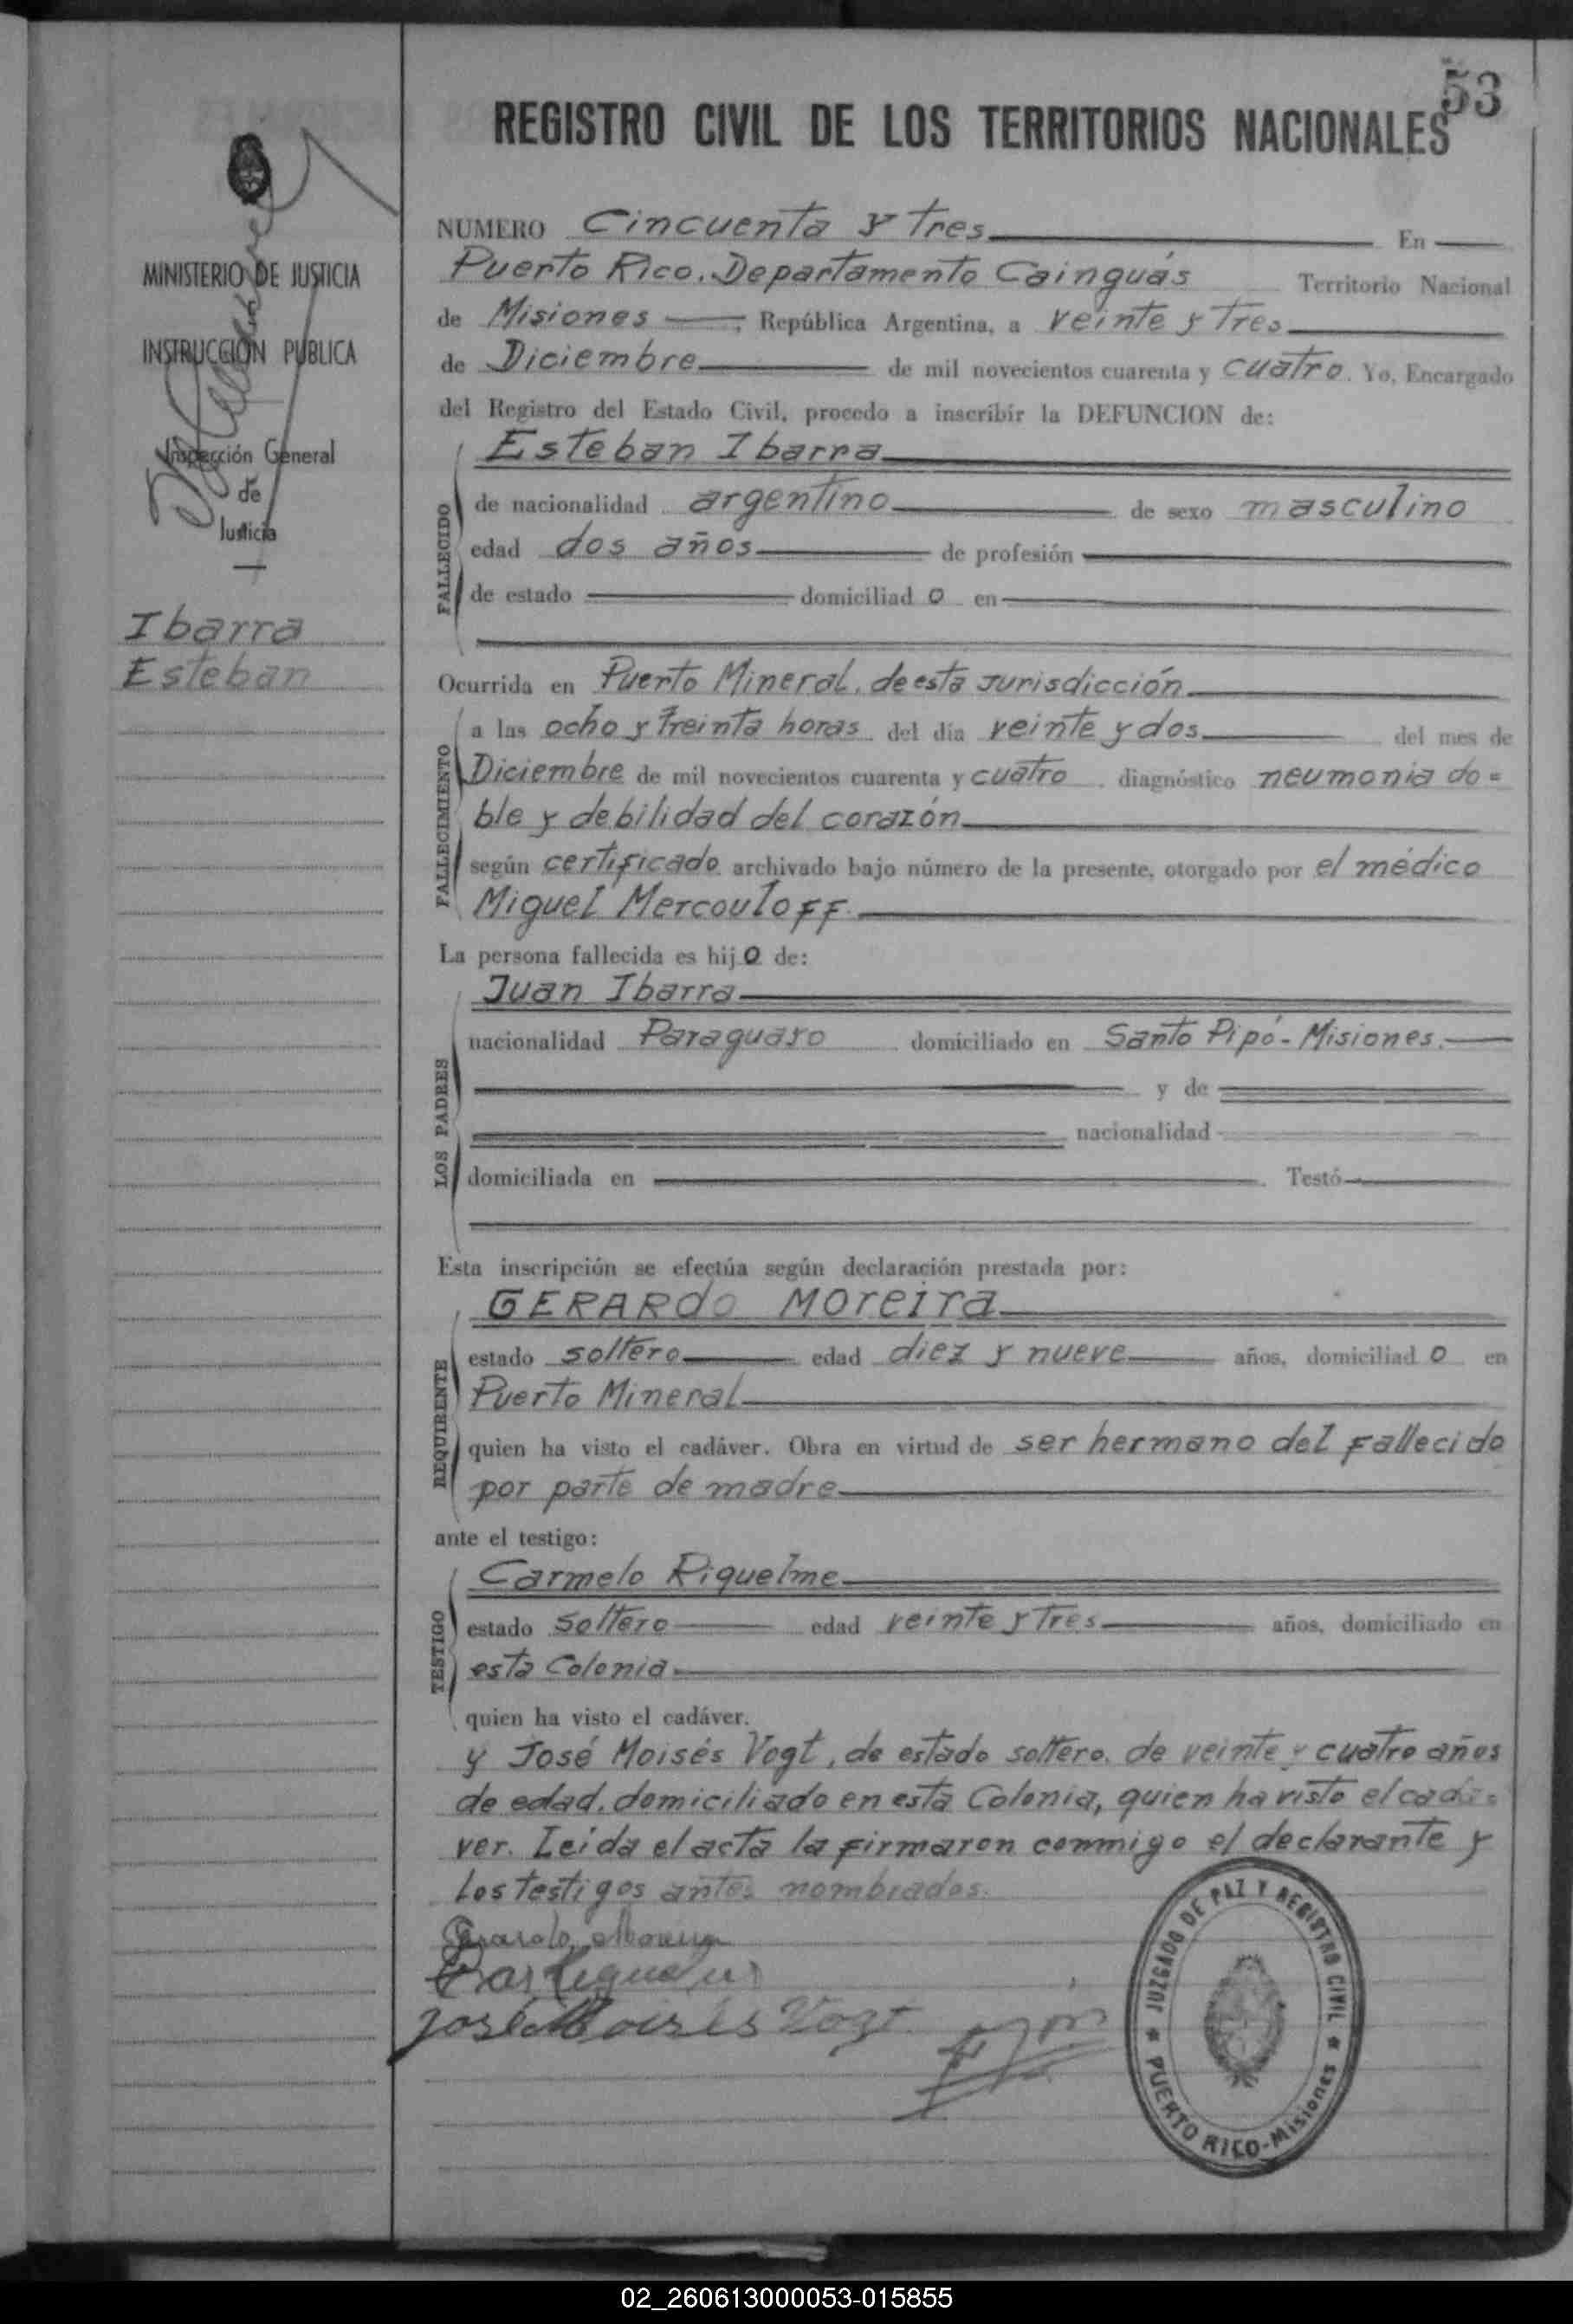 53
REGISTRO CIVIL DE LOS TERRITORIOS NACIONALES
MINISTERIO DE JUSTICIA
INSTRUCCIÓN PUBLICA
Inspección General
de
Justicia
Ibarra
Esteban
NUMERO Cincuenta y tres En
Puerto Rico, Departamento Cainguás Territorio Nacional
de Misiones, República Argentina, a veinte y tres
de Diciembre de mil novecientos cuarenta y cuatro. Yo, Encargado
del Registro del Estado Civil, procedo a inscribir la DEFUNCION de:
FALLECIDO
Esteban Ibarra
de nacionalidad argentino de sexo masculino
edad dos años de profesión
de estado domiciliado en
Ocurrida en Puerto Mineral, de esta Jurisdicción
FALLECIMIENTO
a las ocho y treinta horas del día veinte y dos del mes de
Diciembre de mil novecientos cuarenta y cuatro. diagnóstico neumonia do=
ble y debilidad del corazón
según certificado archivado bajo número de la presente, otorgado por el médico
Miguel Mercouloff
La persona fallecida es hijo de:
LOS PADRES
Juan Ibarra
nacionalidad Paraguayo domiciliado en Santo Pipó-Misiones.
y de
nacionalidad
domiciliada en Testó
Esta inscripción se efectúa según declaración prestada por:
REQUIRENTE
GERARdo Moreira
estado soltero edad diez y nueve años, domiciliado en
Puerto Mineral
quien ha visto el cadáver. Obra en virtud de ser hermano del fallecido
por parte de madre
ante el testigo:
TESTIGO
Carmelo Riquelme
estado soltero edad veinte y tres años, domiciliado en
esta Colonia
quien ha visto el cadáver.
y José Moisés Vogt, de estado soltero, de veinte y cuatro años
de edad, domiciliado en esta Colonia, quien ha visto el cadá=
ver. Leida el acta la firmaron conmigo el declarante y
los testigos antes nombrados.
Gerardo Moreira
José Moisés Vogt
JUZGADO DE PAZ Y REGISTRO CIVIL
PUERTO RICO-Misiones
02_260613000053-015855